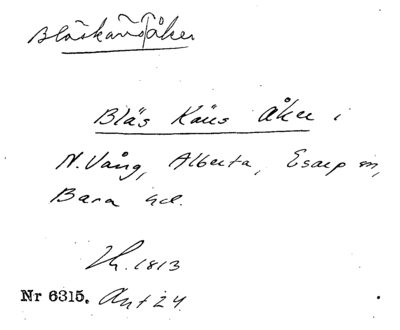 Bläskansåker
Bläs Käns åker i
N. Vång, Alberta, Esarp sn,
Bara hd.
Lh. 1813
Nr 6315. Ant 24